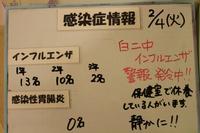 感染症情報 2/4(火)
インフルエンザ
1年 2年 3年
13名 10名 2名
感染性胃腸炎
0名
白二中
インフルエンザ
警報 発令中!!
保健室で休養
している人がいます。
静かに!!